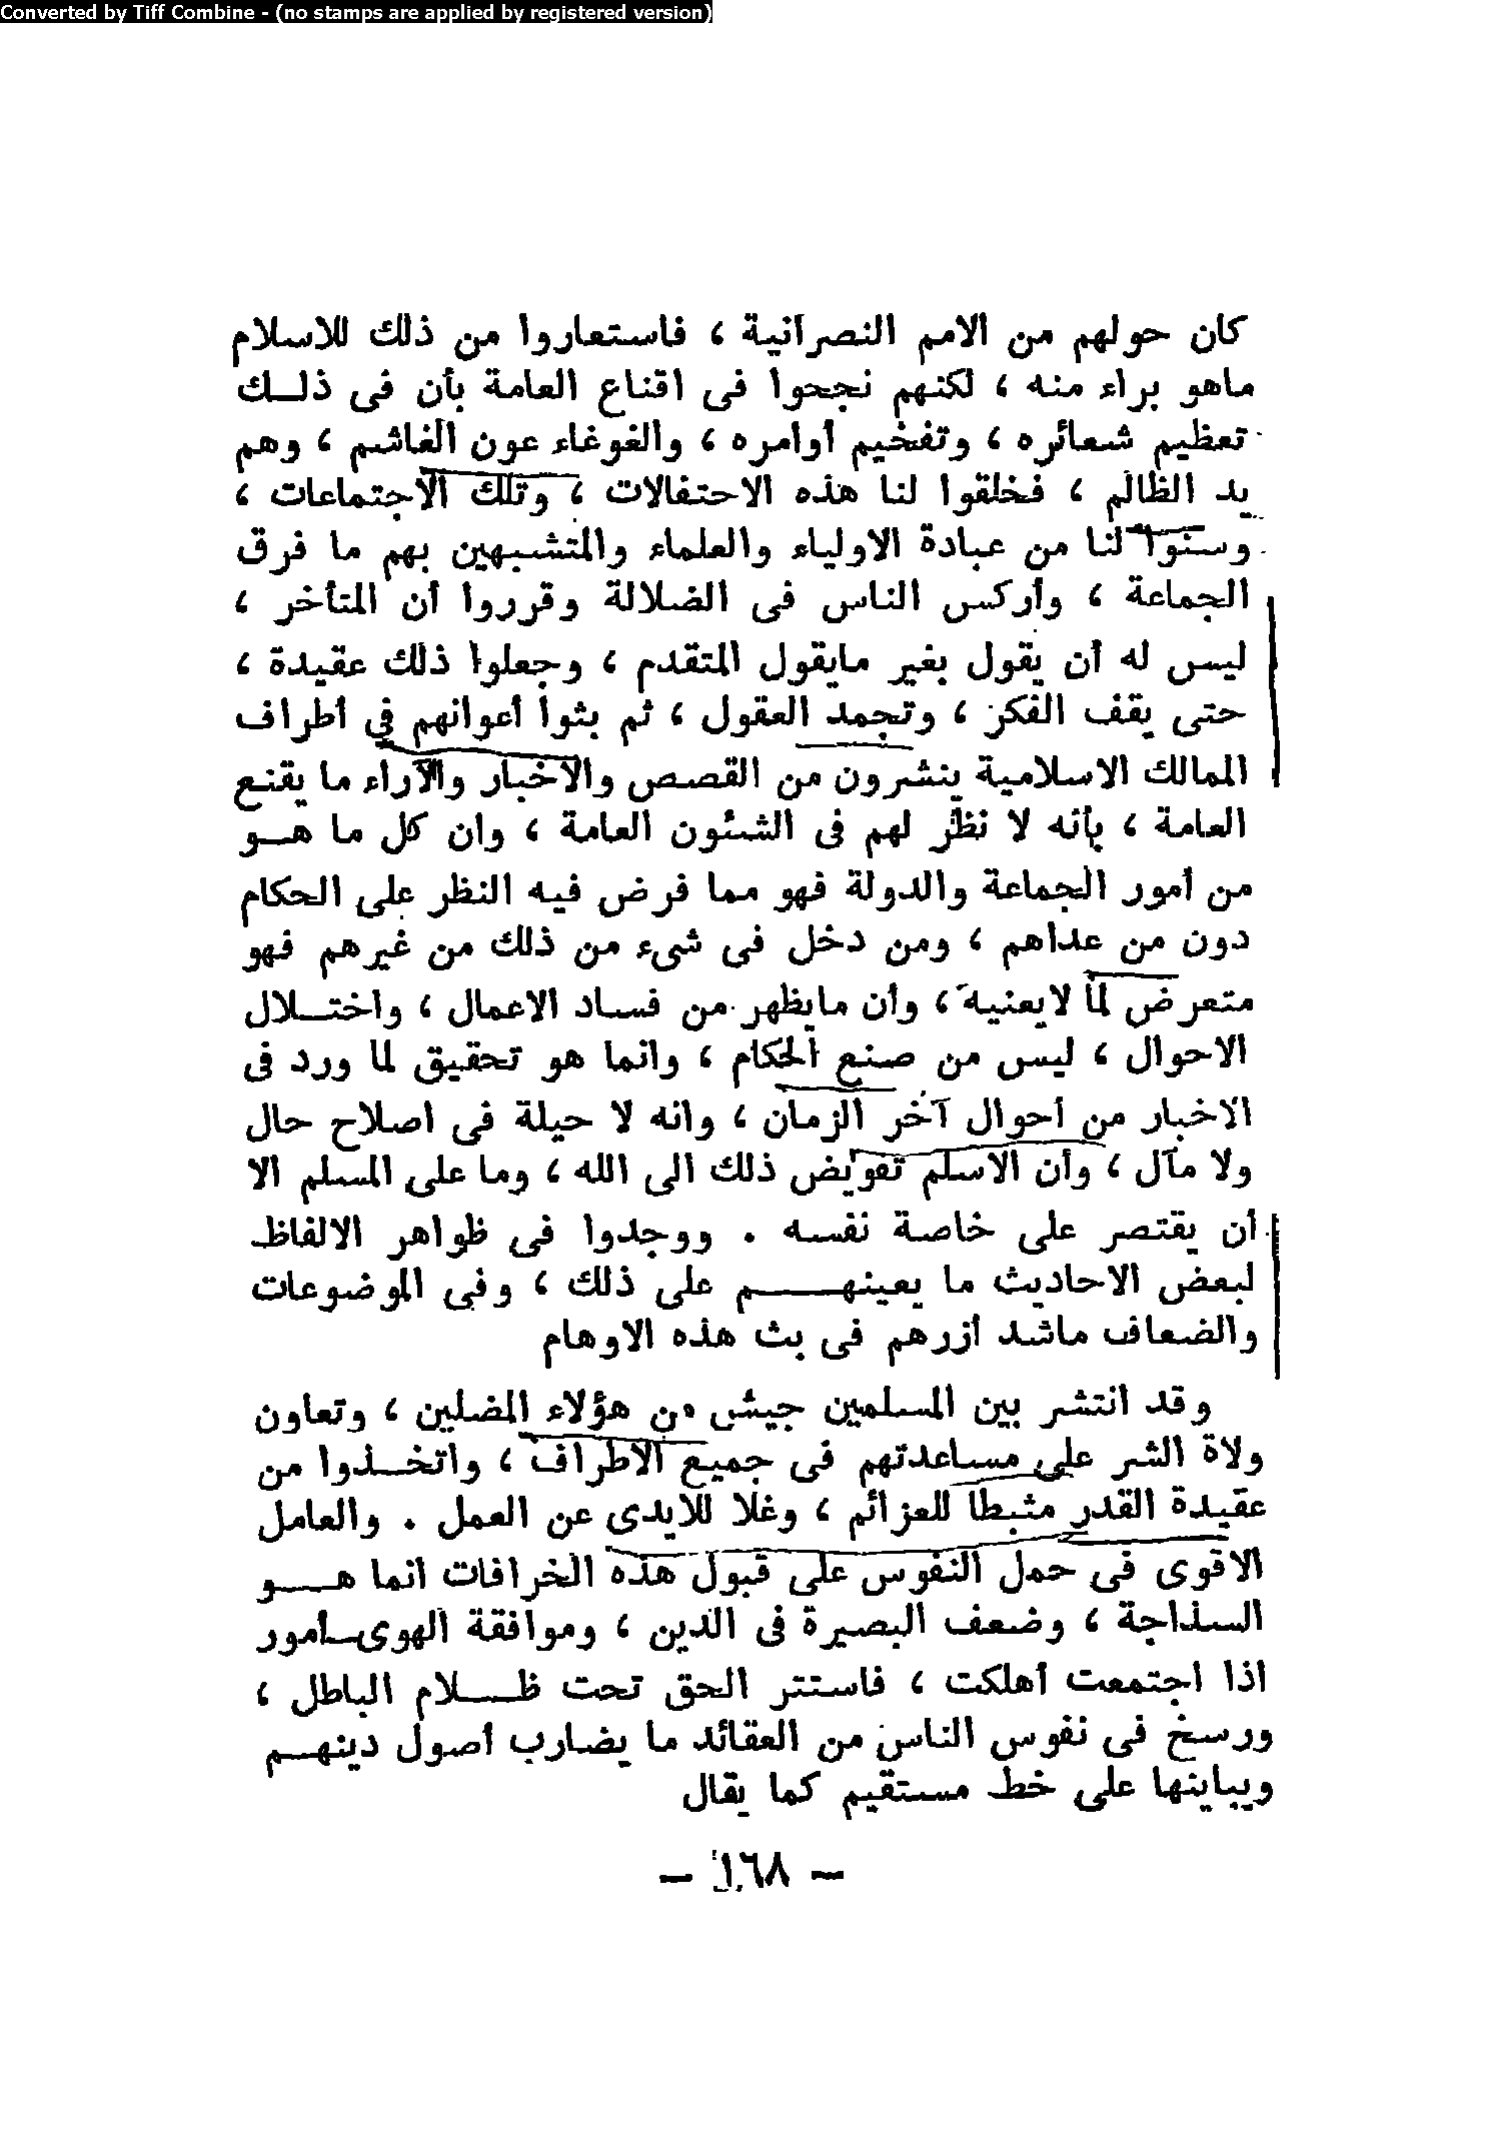 Converted by Tiff Combine - (no stamps are applied by registered version)
كان حولهم من الامم النصرانية ، فاستعاروا من ذلك للاسلام
ماهو براء منه ، لكنهم نجحوا فى اقناع العامة بأن فى ذلـك
تعظيم شعائره ، وتفخيم أوامره ، والغوغاء عون الغاشم ، وهم
يد الظالم ، فخلقوا لنا هذه الاحتفالات ، وتلك الاجتماعات ،
وسنوا لنا من عبادة الاولياء والعلماء والمتشبهين بهم ما فرق
الجماعة ، وأركس الناس فى الضلالة وقرروا أن المتأخر ،
ليس له أن يقول بغير مايقول المتقدم ، وجعلوا ذلك عقيدة ،
حتى يقف الفكر ، وتجمد العقول ، ثم بثوا أعوانهم في أطراف
الممالك الاسلامية ينشرون من القصص والاخبار والآراء ما يقنع
العامة ، بأنه لا نظر لهم فى الشئون العامة ، وان كل ما هـو
من أمور الجماعة والدولة فهو مما فرض فيه النظر على الحكام
دون من عداهم ، ومن دخل فى شىء من ذلك من غيرهم فهو
متعرض لما لايعنيه ، وأن مايظهر من فساد الاعمال ، واختـلال
الاحوال ، ليس من صنع الحكام ، وانما هو تحقيق لما ورد فى
الاخبار من أحوال آخر الزمان ، وانه لا حيلة فى اصلاح حال
ولا مآل ، وأن الاسلم تفويض ذلك الى الله ، وما على المسلم الا
أن يقتصر على خاصة نفسه . ووجدوا فى ظواهر الالفاظ
لبعض الاحاديث ما يعينهـــم على ذلك ، وفى الموضوعات
والضعاف ماشد أزرهم فى بث هذه الاوهام
وقد انتشر بين المسلمين جيش من هؤلاء المضلين ، وتعاون
ولاة الشر على مساعدتهم فى جميع الاطراف ، واتخـذوا من
عقيدة القدر مثبطا للعزائم ، وغلا للايدى عن العمل . والعامل
الاقوى فى حمل النفوس على قبول هذه الخرافات انما هــو
السذاجة ، وضعف البصيرة فى الدين ، وموافقة الهوى ـ أمور
اذا اجتمعت أهلكت ، فاستتر الحق تحت ظــلام الباطل ،
ورسخ فى نفوس الناس من العقائد ما يضارب أصول دينهـم
ويباينها على خط مستقيم كما يقال
– ١٦٨ –